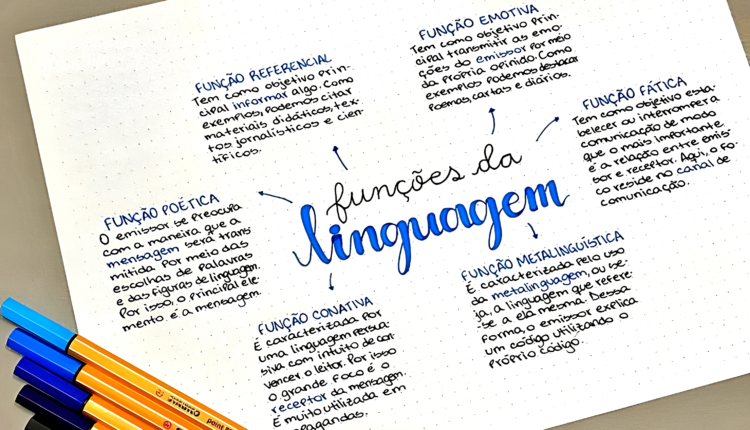 funções da
linguagem
FUNÇÃO REFERENCIAL
Tem como objetivo prin-
cipal informar algo. Como
exemplos, podemos citar
materiais didáticos, tex-
tos jornalísticos e cien-
tíficos.
FUNÇÃO EMOTIVA
Tem como objetivo prin-
cipal transmitir as emo-
ções do emissor por meio
da própria opinião. Como
exemplos podemos destacar
poemas, cartas e diários.
FUNÇÃO FÁTICA
Tem como objetivo esta-
belecer ou interromper a
comunicação de modo
que o mais importante
é a relação entre emis-
sor e receptor. Aqui, o fo-
co reside no canal de
comunicação.
FUNÇÃO POÉTICA
O emissor se preocupa
com a maneira que a
mensagem será trans-
mitida por meio das
escolhas de palavras
e das figuras de linguagem.
Por isso, o principal ele-
mento é a mensagem.
FUNÇÃO CONATIVA
É caracterizada por
uma linguagem persua-
siva com intuito de con-
vencer o leitor. Por isso
o grande foco é o
receptor da mensagem.
É muito utilizada em
propagandas.
FUNÇÃO METALINGUÍSTICA
É caracterizada pelo uso
da metalinguagem, ou se-
ja, a linguagem que refere-
-se a ela mesma. Dessa
forma, o emissor explica
um código utilizando o
próprio código.
STABILO
point